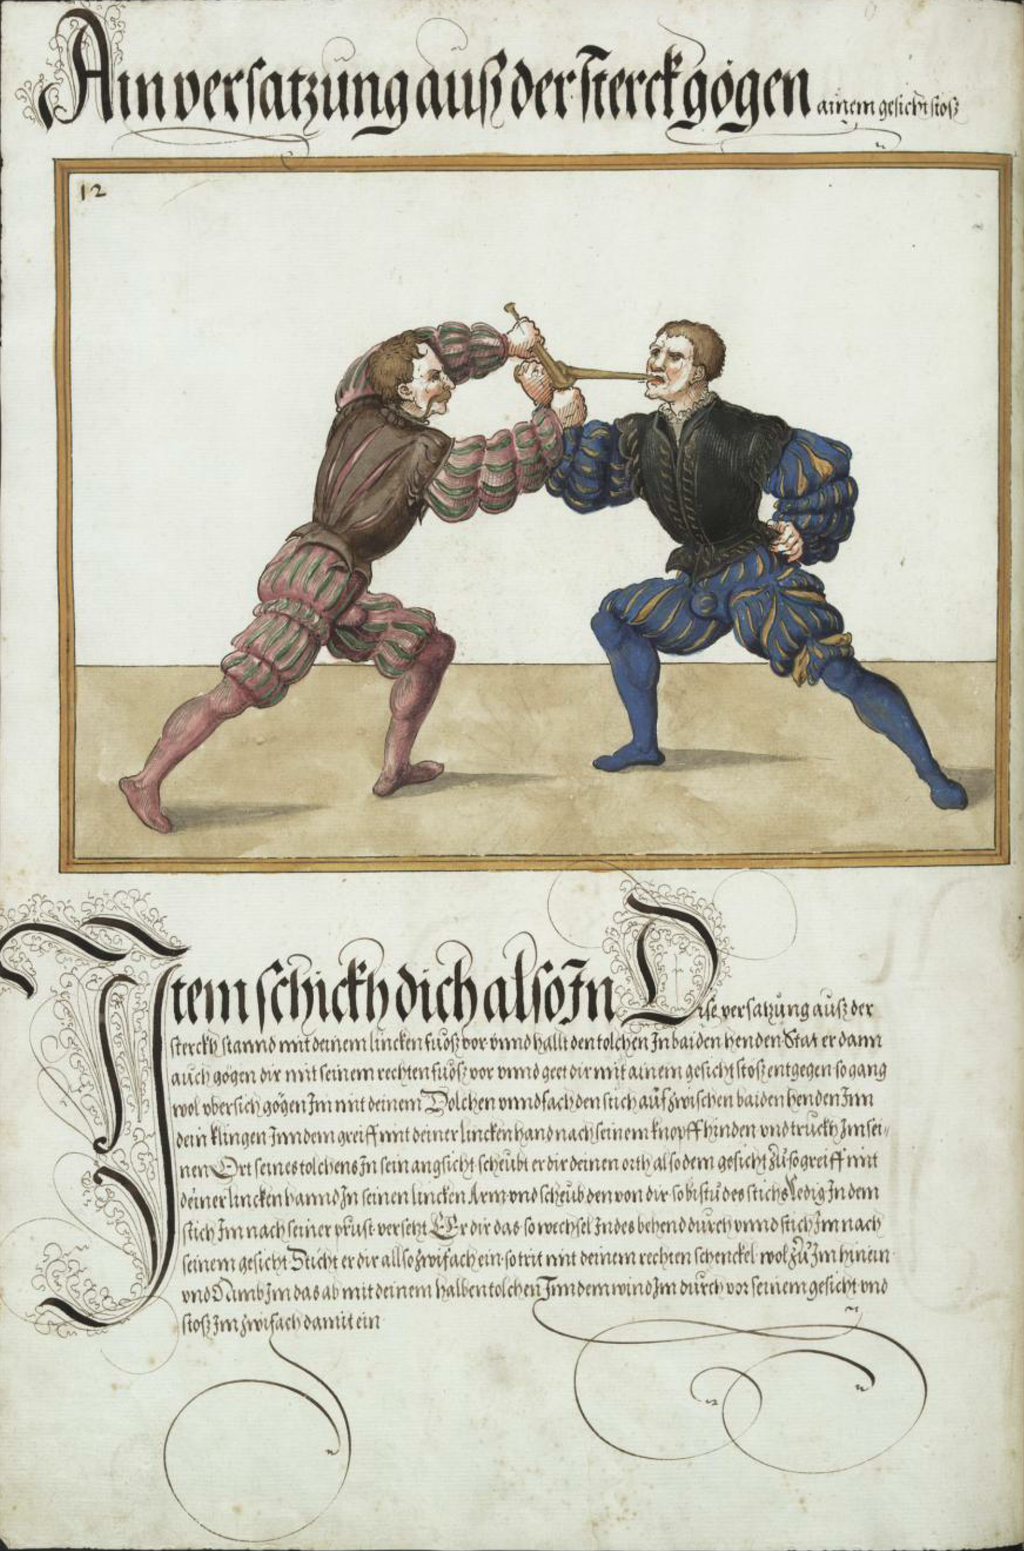 Ain versatzung auß der sterck gögen ainem gesicht stoß
12
Item schickh dich also In Dise versatzung auß der
sterckh stannd mit deinem lincken fuoß vor vnnd hallt den tolchen In baiden henden Stat er dann
auch gögen dir mit seinem rechten fuoß vor vnnd geet dir mit ainem gesicht stoß entgegen so gang
wol vbersich gögen Im mit deinem Dolchen vnnd fach den stich auf zwischen baiden henden Inn
dein klingen Inn dem greiff mit deiner lincken hand nach seinem knopff hinden vnd truckh Im sei-
nen Ort seines tolchens In sein angsicht scheubt er dir deinen orth also dem gesicht zu so greiff mit
deiner lincken hannd In seinen lincken Arm vnd scheub den von dir so bistu des stichs ledig In dem
stich Im nach seiner prust versetzt Er dir das so wechsel Indes behend durch vnnd stich Im nach
seinem gesicht Sticht er dir allso zwifach ein so trit mit deinem rechten schenckel wol zu Im hinein
vnd Damb Im das ab mit deinem halben tolchen Inn dem wind Im durch vor seinem gesicht vnd
stoß Im zwifach damit ein